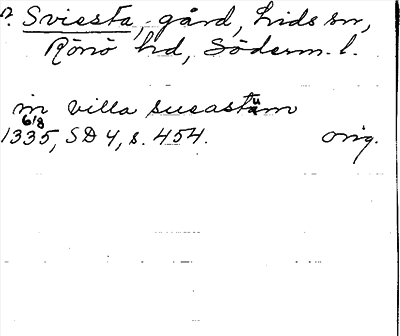 ?. Sviesta, gård, Lids sn,
Rönö hd, Söderm. l.
in villa sueastum
6/8
1335, SD 4, s. 454. orig.